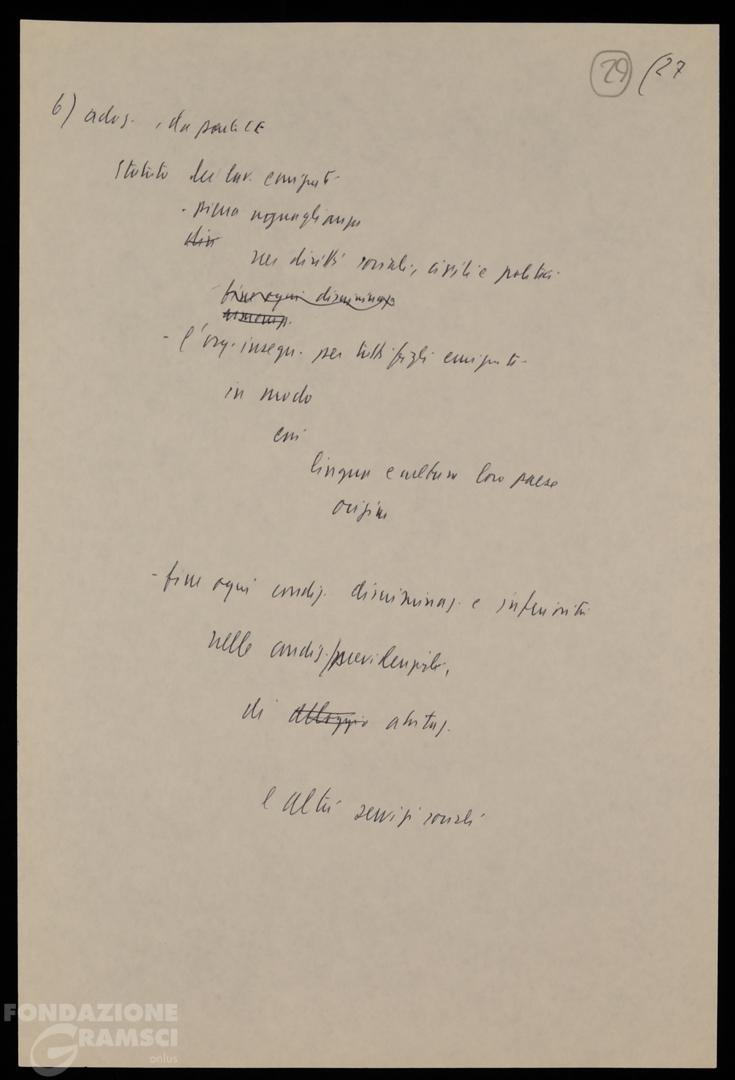 29 (27
6) adoz. , da parte CE
Statuto dei lav. emigrati
- piena uguaglianza
dir
nei diritti sociali, civili e politici
- fine ogni discriminaz
- l'org. insegn. per tutti figli emigrati
in modo
cui
lingua e cultura loro paese
origine
- fine ogni condiz. discriminaz. e inferiorità
nelle condiz. previdenziali,
di alloggio abitaz.
e altri servizi sociali
FONDAZIONE
GRAMSCI
onlus